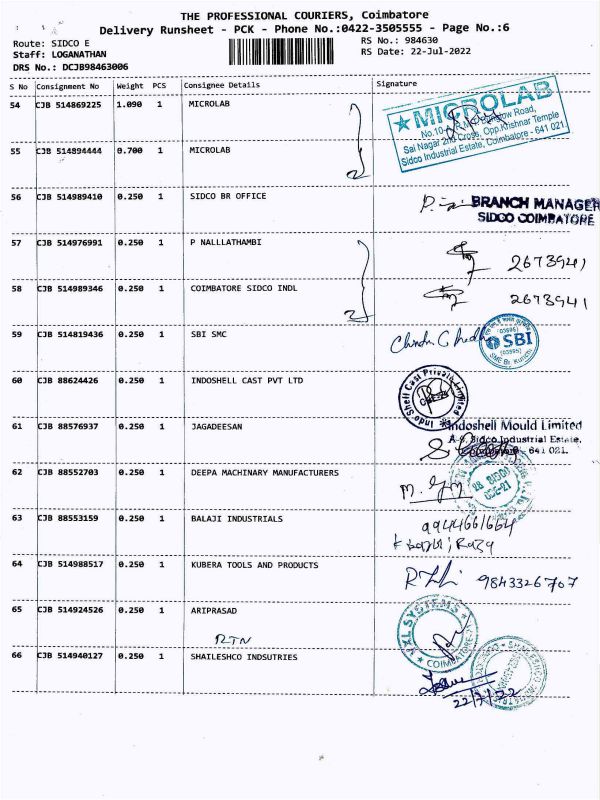 THE PROFESSIONAL COURIERS, Coimbatore
Delivery Runsheet - PCK - Phone No.:0422-3505555 - Page No.:6
Route: SIDCO E RS No.: 984630
Staff: LOGANATHAN RS Date: 22-Jul-2022
DRS No.: DCJB98463006
S No Consignment No Weight PCS Consignee Details Signature
54 CJB 514869225 1.090 1 MICROLAB
★ MICROLAB
Road,
Sai Nagar 2nd Cross, Opp.Krishnar Temple
Sidco Industrial Estate, Coimbatore - 641 021
55 CJB 514894444 0.700 1 MICROLAB
2
56 CJB 514989410 0.250 1 SIDCO BR OFFICE
BRANCH MANAGER
SIDCO COIMBATORE
57 CJB 514976991 0.250 1 P NALLLATHAMBI
2673941
58 CJB 514989346 0.250 1 COIMBATORE SIDCO INDL
2673941
2
59 CJB 514819436 0.250 1 SBI SMC
SBI
60 CJB 88624426 0.250 1 INDOSHELL CAST PVT LTD
Indo Shell Cast Private Limited
61 CJB 88576937 0.250 1 JAGADEESAN
Indoshell Mould Limited
Sidco Industrial Estate,
641 021.
62 CJB 88552703 0.250 1 DEEPA MACHINARY MANUFACTURERS
63 CJB 88553159 0.250 1 BALAJI INDUSTRIALS
9944661664
64 CJB 514988517 0.250 1 KUBERA TOOLS AND PRODUCTS
9843326707
65 CJB 514924526 0.250 1 ARIPRASAD
RTN
SYSTEMS
66 CJB 514940127 0.250 1 SHAILESHCO INDSUTRIES
22/7/22